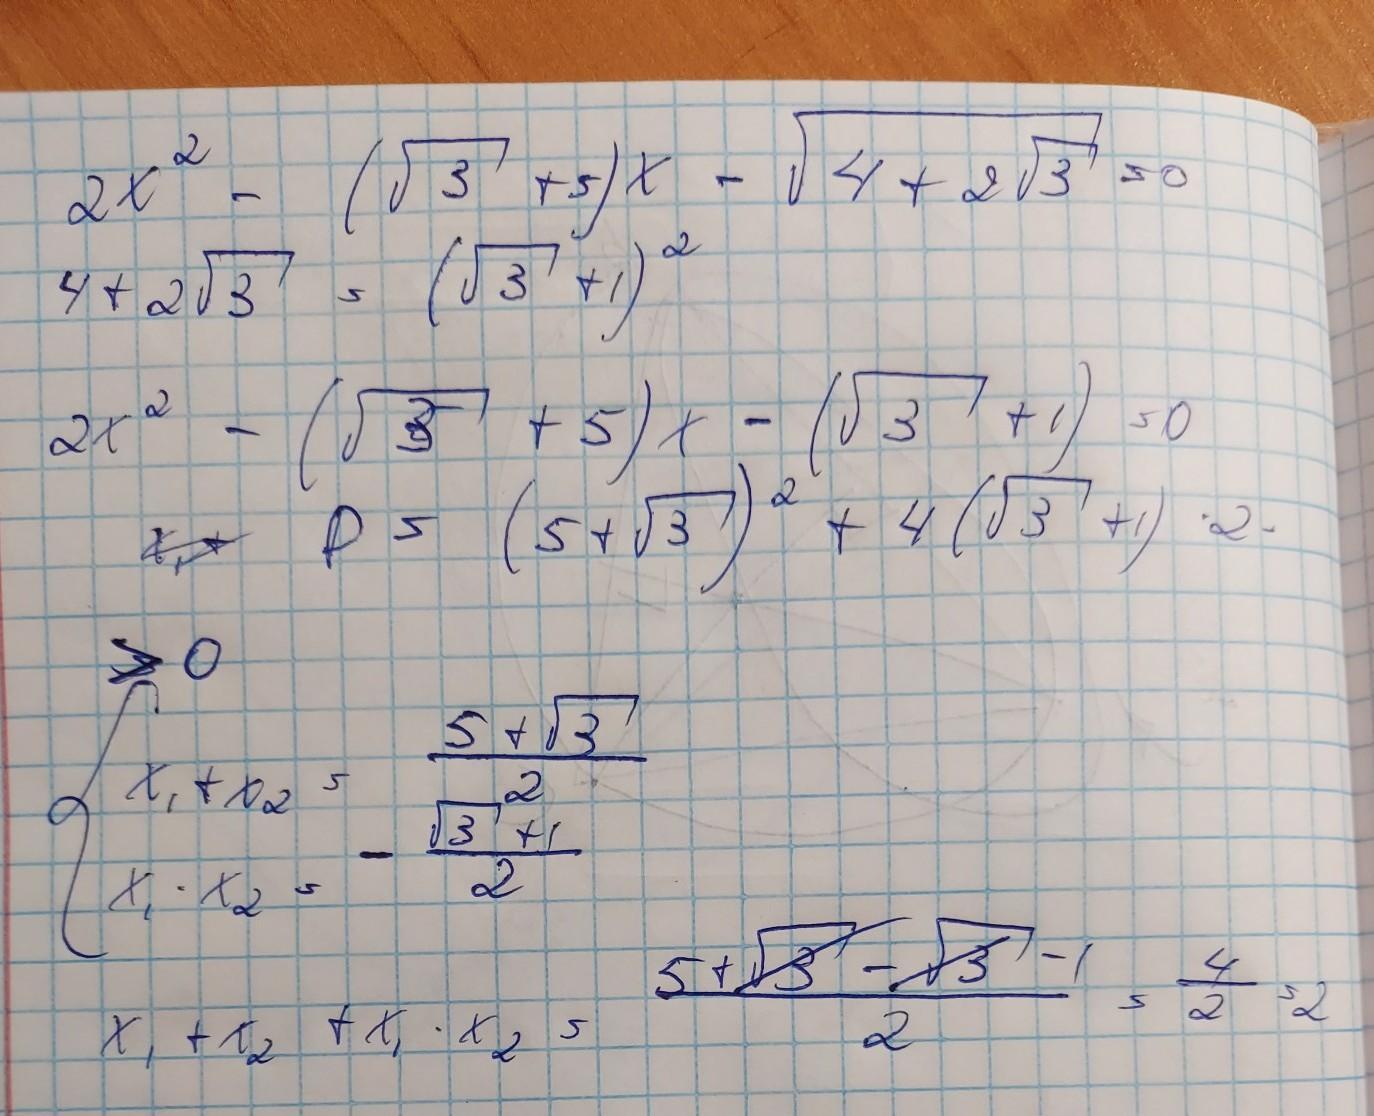 2x² - (√3 + 5)x - √(4 + 2√3) = 0
4 + 2√3 = (√3 + 1)²
2x² - (√3 + 5)x - (√3 + 1) = 0
D = (5 + √3)² + 4(√3 + 1) · 2 =
> 0
x₁ + x₂ = (5 + √3)/2
x₁ · x₂ = - (√3 + 1)/2
x₁ + x₂ + x₁ · x₂ = (5 + √3 - √3 - 1)/2 = 4/2 = 2